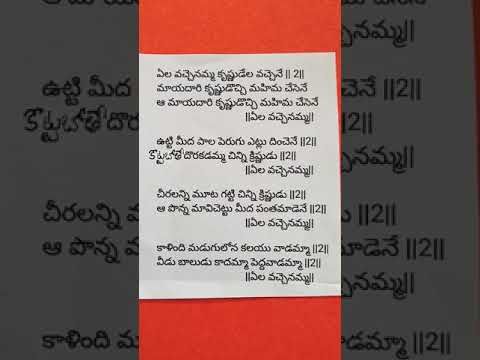 ఏల వచ్చెనమ్మ కృష్ణుడేల వచ్చెనే || 2||
మాయదారి కృష్ణుడొచ్చి మహిమ చేసెనే
ఆ మాయదారి కృష్ణుడొచ్చి మహిమ చేసెనే
||ఏల వచ్చెనమ్మ||
ఉట్టి మీద పాల పెరుగు ఎట్లు దించెనే ||2||
కొట్టబోతే దొరకడమ్మ చిన్ని క్రిష్ణుడు ||2||
||ఏల వచ్చెనమ్మ||
చీరలన్ని మూట గట్టి చిన్ని క్రిష్ణుడు ||2||
ఆ పొన్న మావిచెట్టు మీద పంతమాడెనే ||2||
||ఏల వచ్చెనమ్మ||
కాళింది మడుగులోన కలయు వాడమ్మా ||2||
వీడు బాలుడు కాదమ్మా పెద్దవాడమ్మా ||2||
||ఏల వచ్చెనమ్మ||